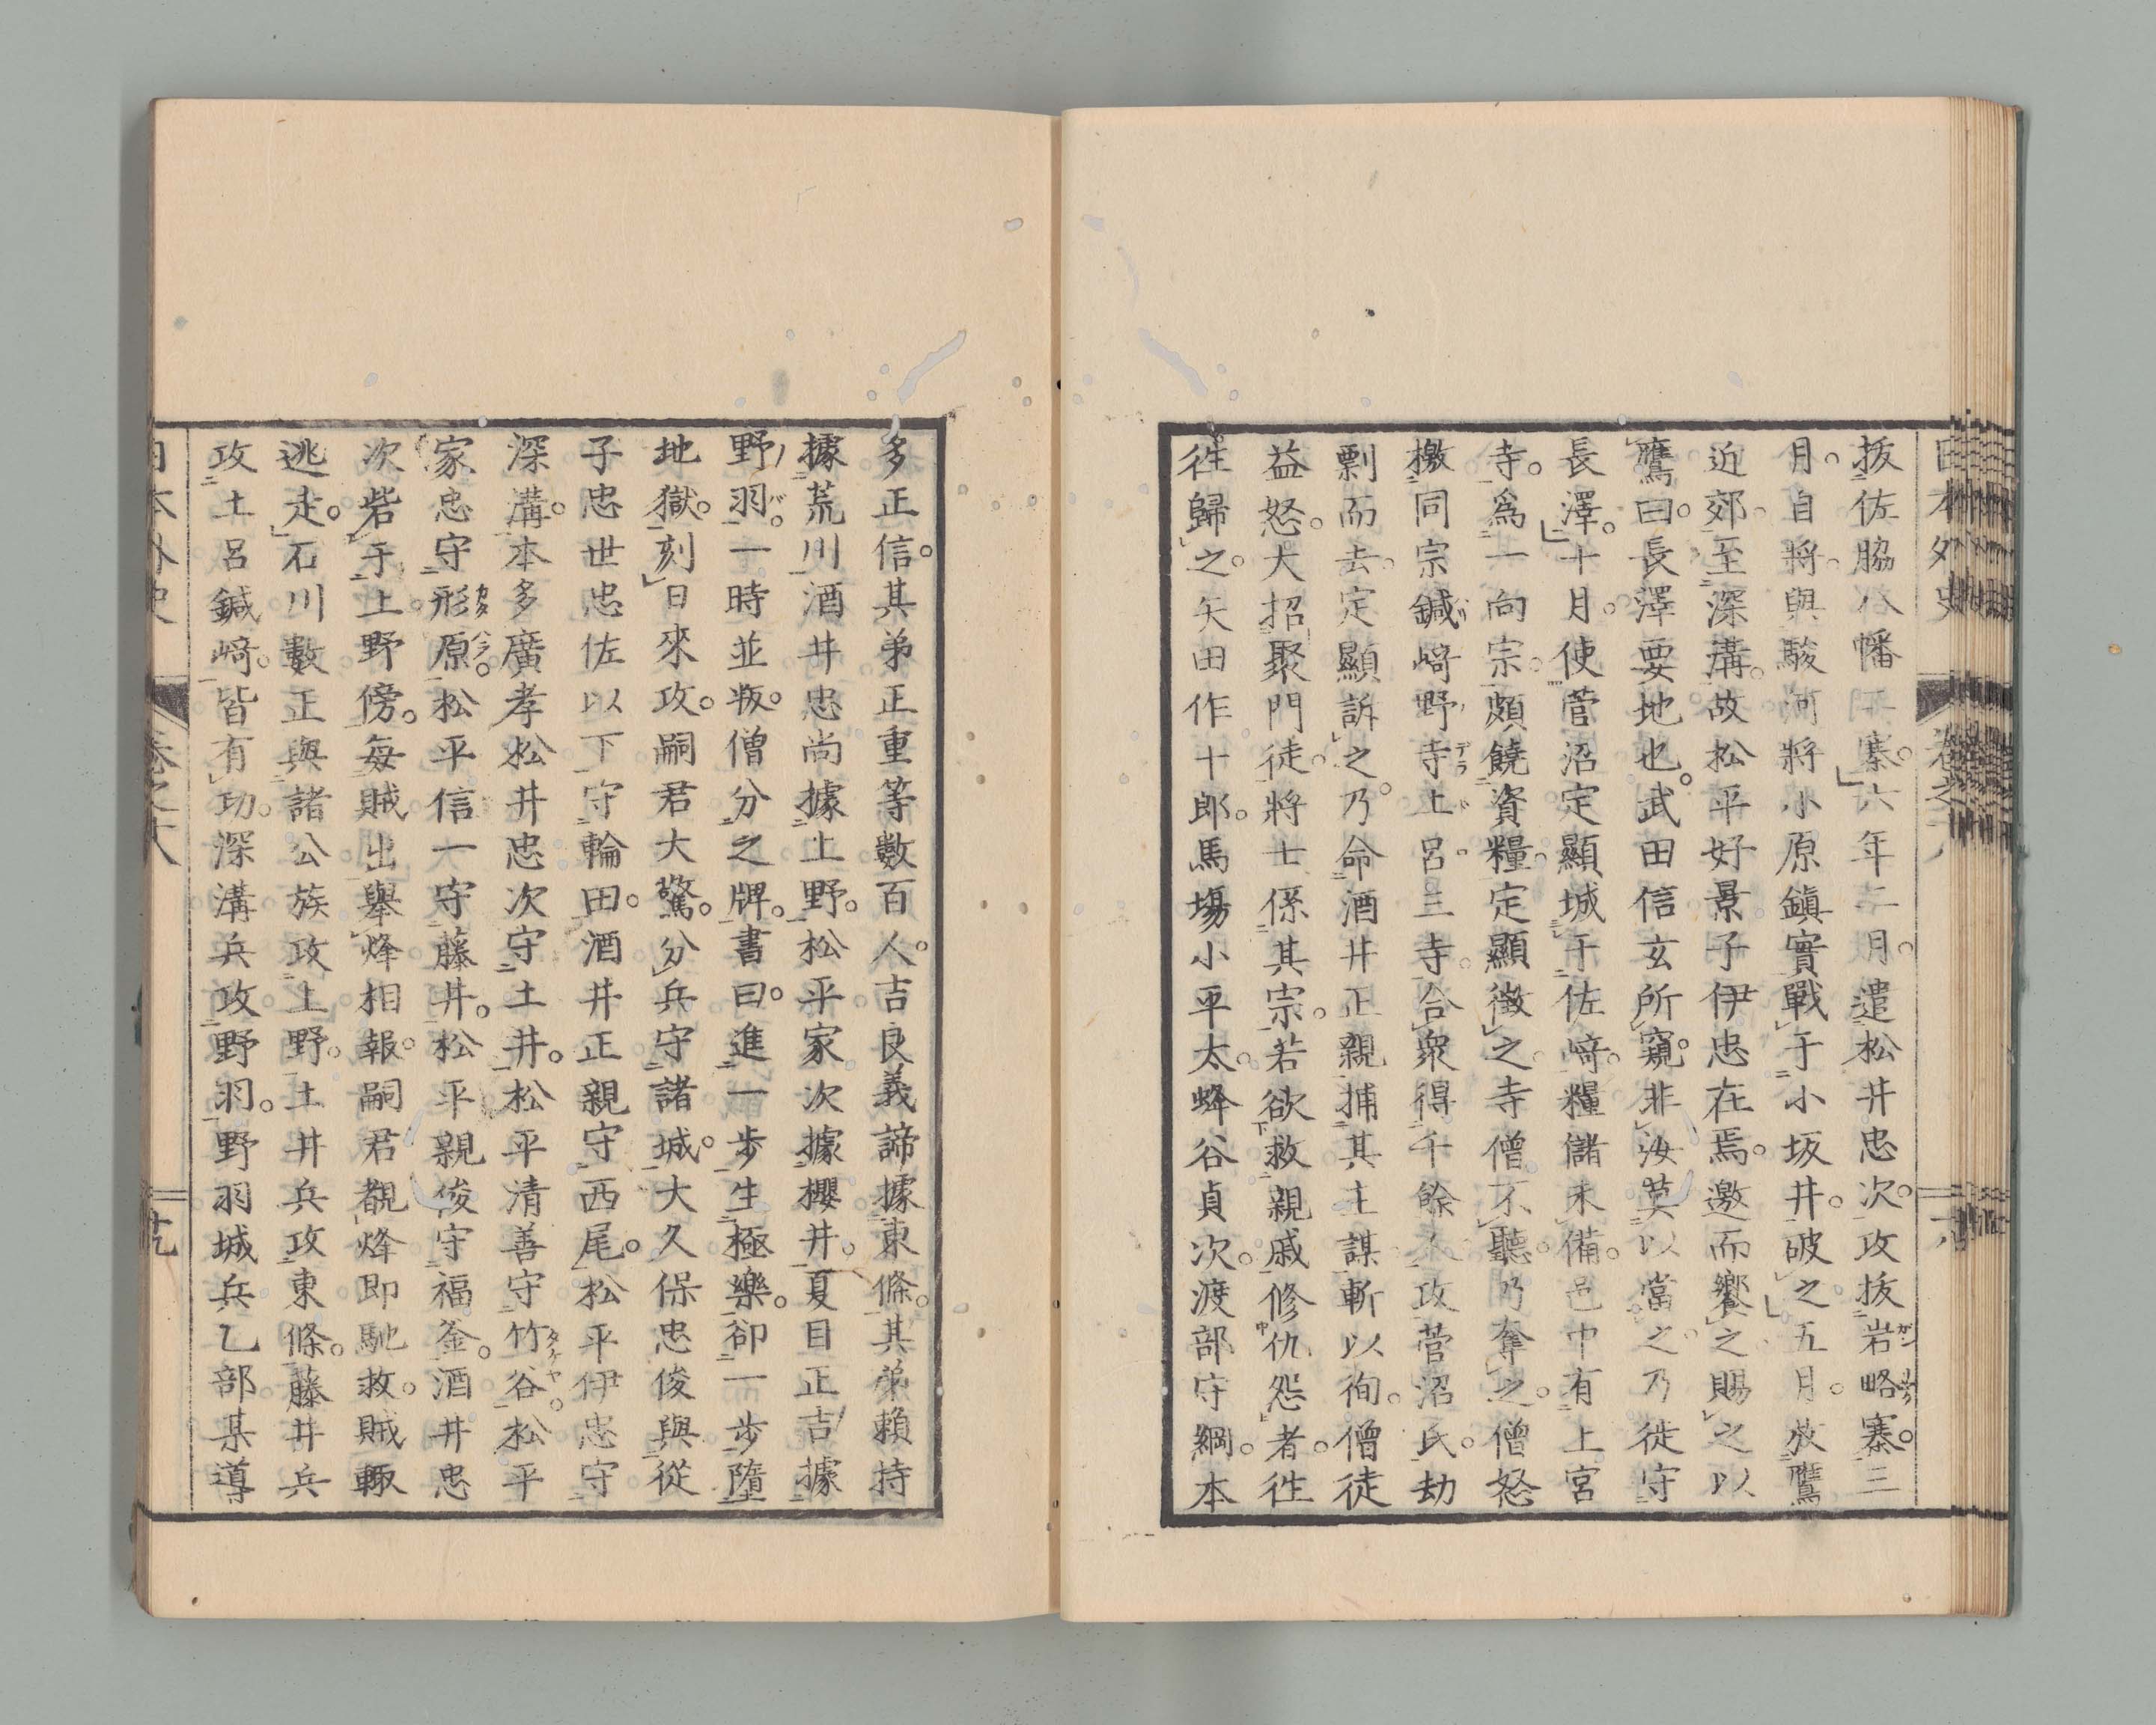 拔佐脇八幡二寨。六年二月。遣松井忠次。攻拔岩略寨。三
月。自將。與駿河將小原鎮實戰于小坂井。破之。五月。放鷹
近郊。至深溝。故松平好景子伊忠在焉。邀而饗之。賜之以
鷹。曰。長澤要地也。武田信玄所窺。非汝莫以當之。乃徙守
長澤。十月。使菅沼定顯城于佐﨑。糧儲未備。邑中有上宮
寺。爲一向宗。頗饒資糧。定顯徵之。寺僧不聽。乃奪之。僧怒
檄同宗鍼﨑野寺土呂三寺。合衆得千餘人。攻菅沼氏。劫
剽而去。定顯訴之。乃命酒井正親。捕其主謀。斬以徇。僧徒
益怒。大招聚門徒。將士係其宗。若欲救親戚修仇怨者。往
往歸之。矢田作十郎。馬場小平太。蜂谷貞次。渡部守綱。本
多正信。其弟正重等數百人。吉良義諦據東條。其弟賴持
據荒川。酒井忠尚據上野。松平家次據櫻井。夏目正吉據
野羽。一時並叛。僧分之牌。書曰。進一步生極樂。卻一步墮
地獄。刻日來攻。嗣君大驚。分兵守諸城。大久保忠俊與從
子忠世忠佐以下守輪田。酒井正親守西尾。松平伊忠守
深溝。本多廣孝松井忠次守土井。松平清善守竹谷。松平
家忠守形原。松平信一守藤井。松平親俊守福釜。酒井忠
次砦于上野傍。每賊出。舉烽相報。嗣君覩烽即馳救。賊輙
逃走。石川數正與諸公族攻上野。土井兵攻東條。藤井兵
攻土呂鍼﨑。皆有功。深溝兵攻野羽。野羽城兵乙部某導
日本外史 卷之十八 廿九